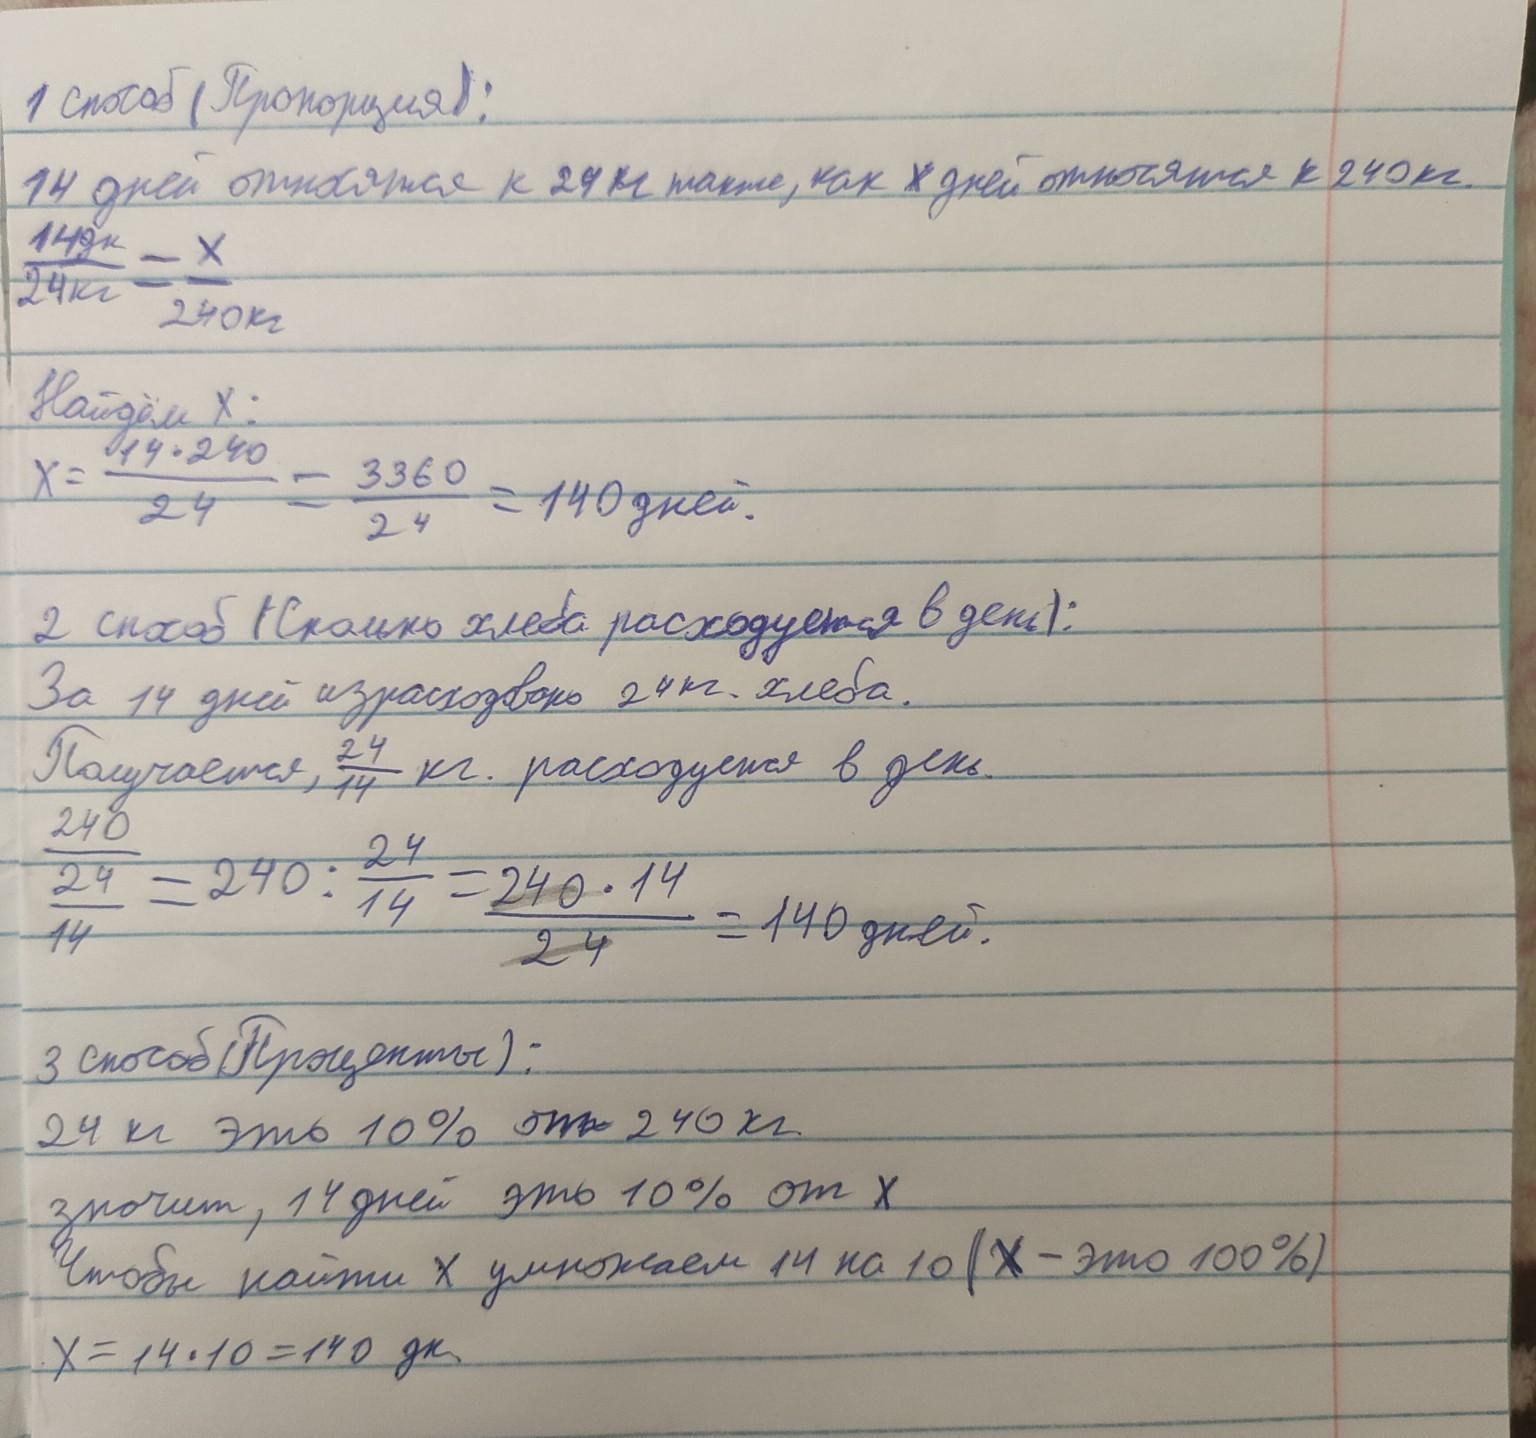 1 способ (Пропорция):
14 дней относятся к 24 кг также, как x дней относятся к 240 кг.
14дн/24кг = x/240кг
Найдём x:
x = 14·240/24 = 3360/24 = 140 дней.
2 способ (Сколько хлеба расходуется в день):
За 14 дней израсходвоно 24 кг. хлеба.
Получается, 24/14 кг. расходуется в день.
240/(24/14) = 240 : 24/14 = 240·14/24 = 140 дней.
3 способ (Проценты):
24 кг это 10% от 240 кг
значит, 14 дней это 10% от x
Чтобы найти x умножаем 14 на 10 (x - это 100%)
x = 14·10 = 140 дн.